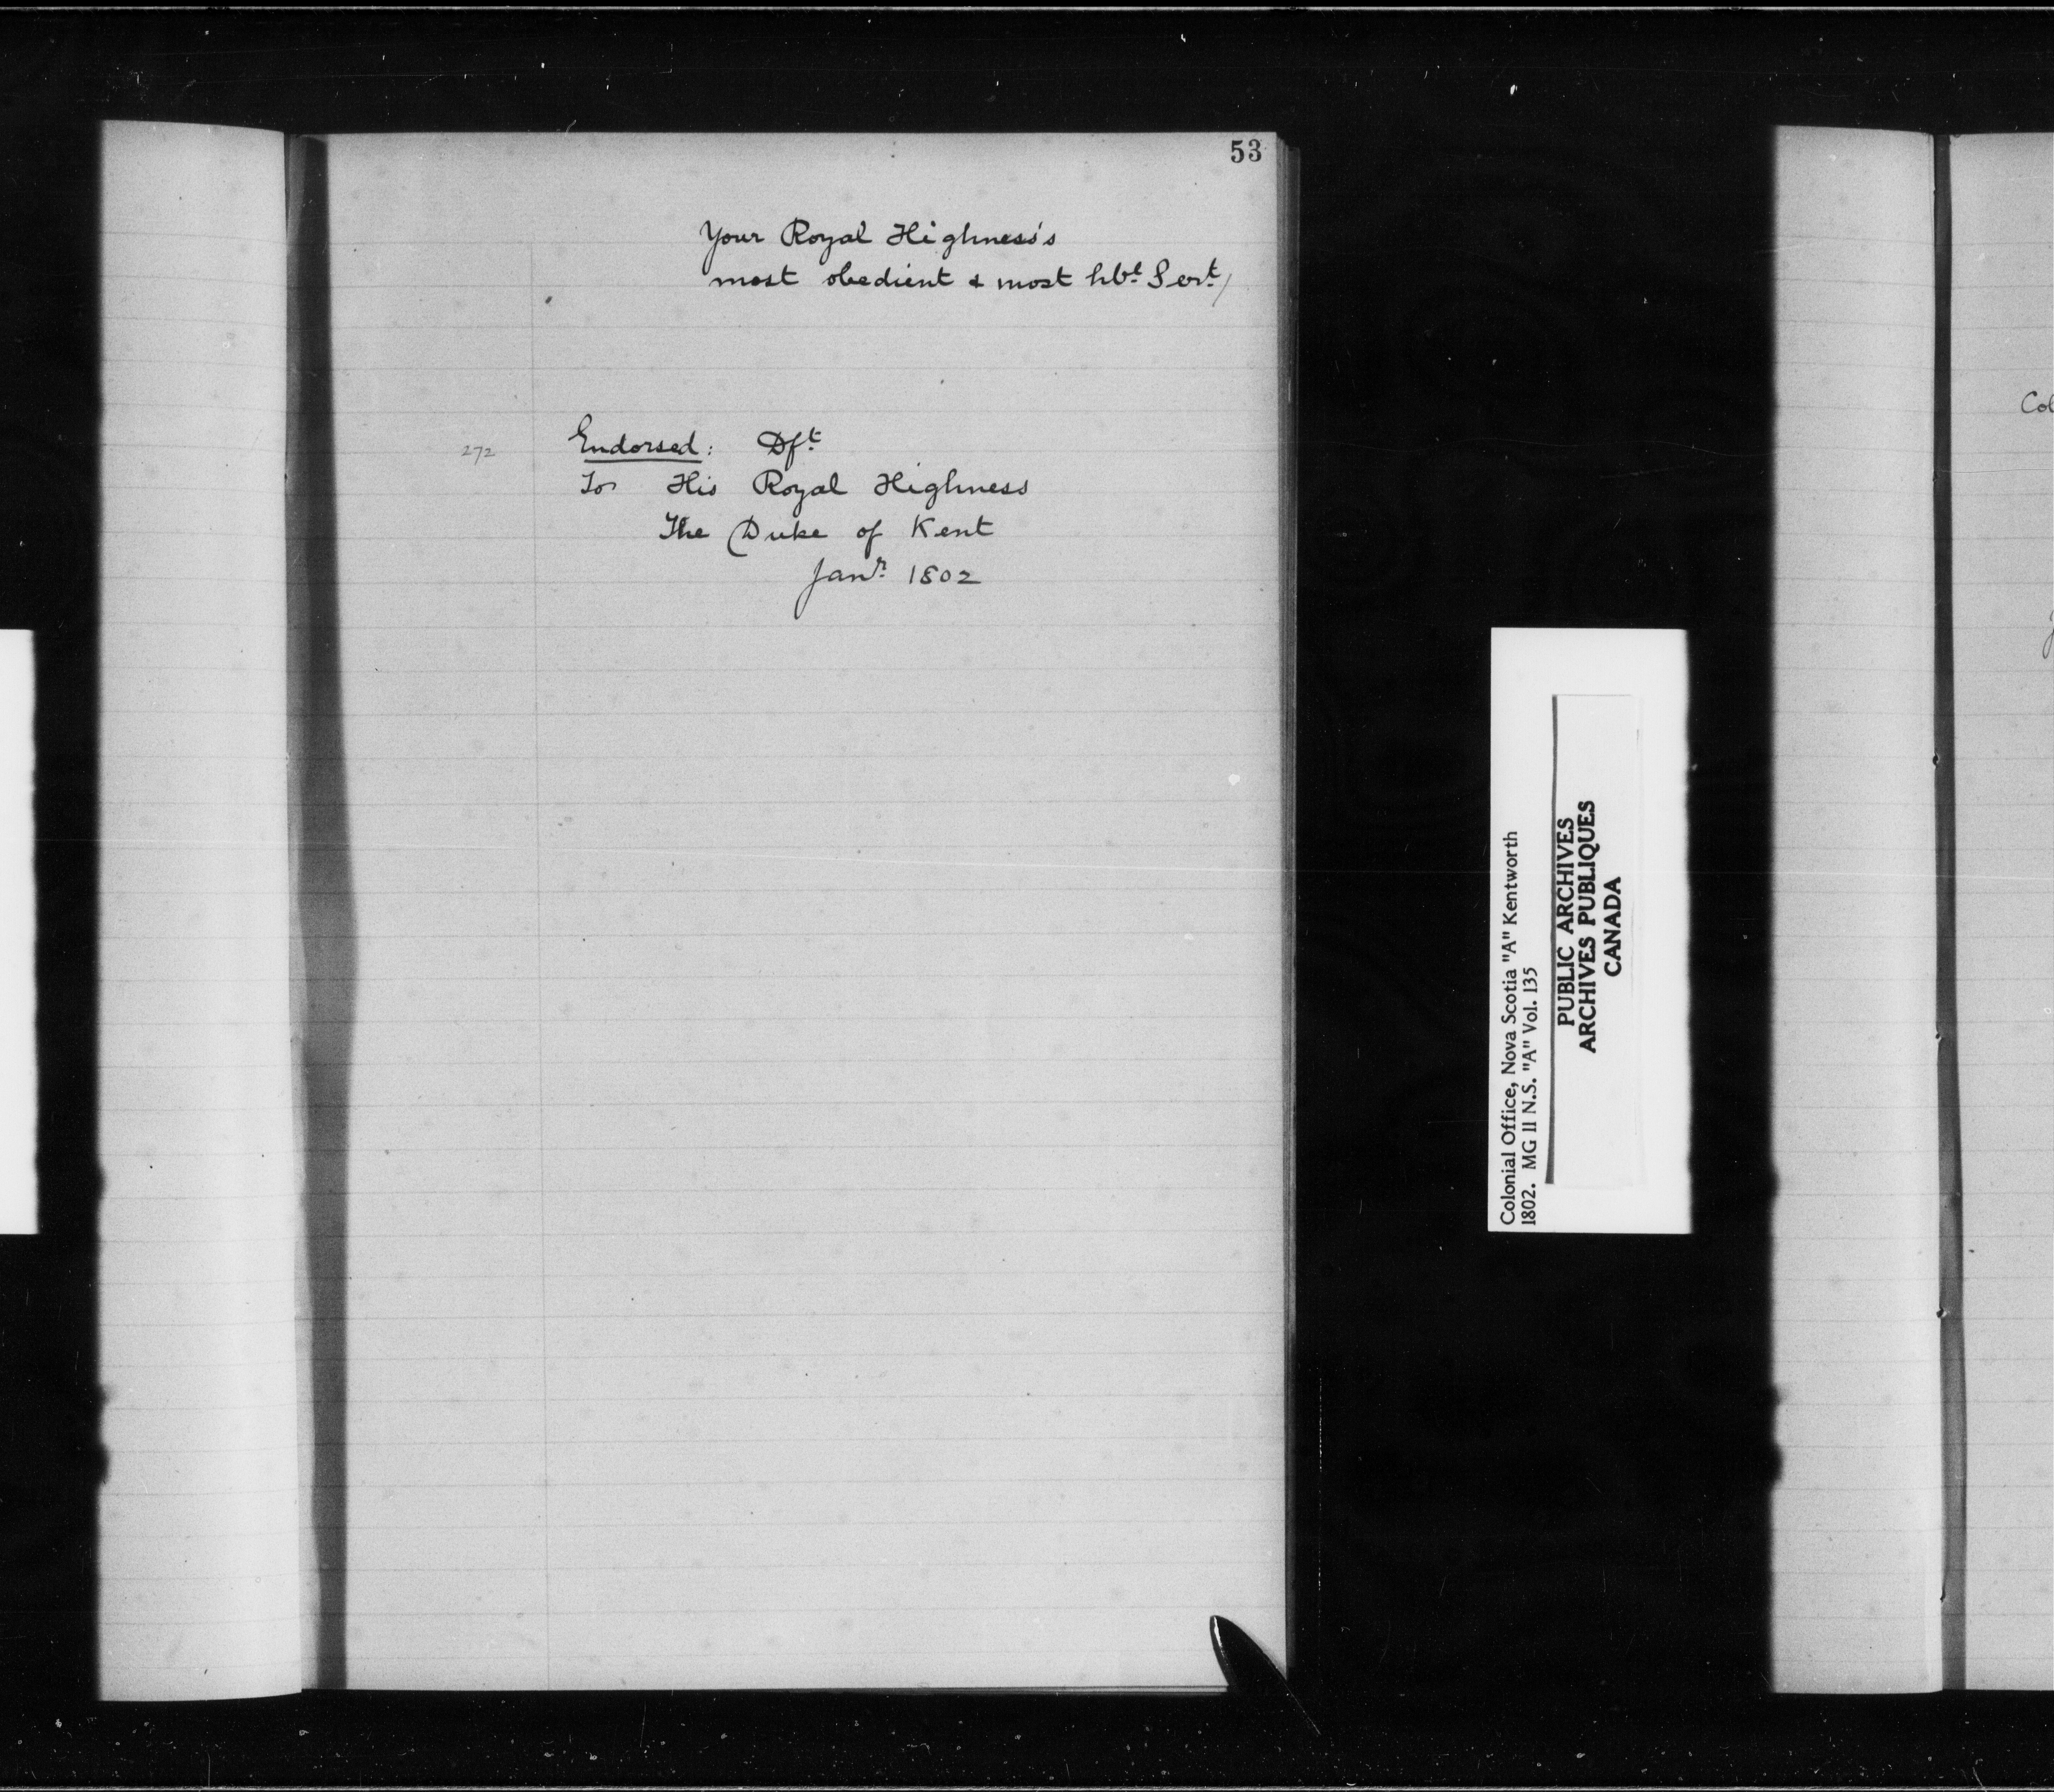 53
Your Royal Highness's
most obedient & most hble Servt/
272
Endorsed: Dft
To His Royal Highness
The Duke of Kent
Janr 1802
Colonial Office, Nova Scotia "A" Kentworth
1802. MG 11 N.S. "A" Vol. 135
PUBLIC ARCHIVES
ARCHIVES PUBLIQUES
CANADA
Col